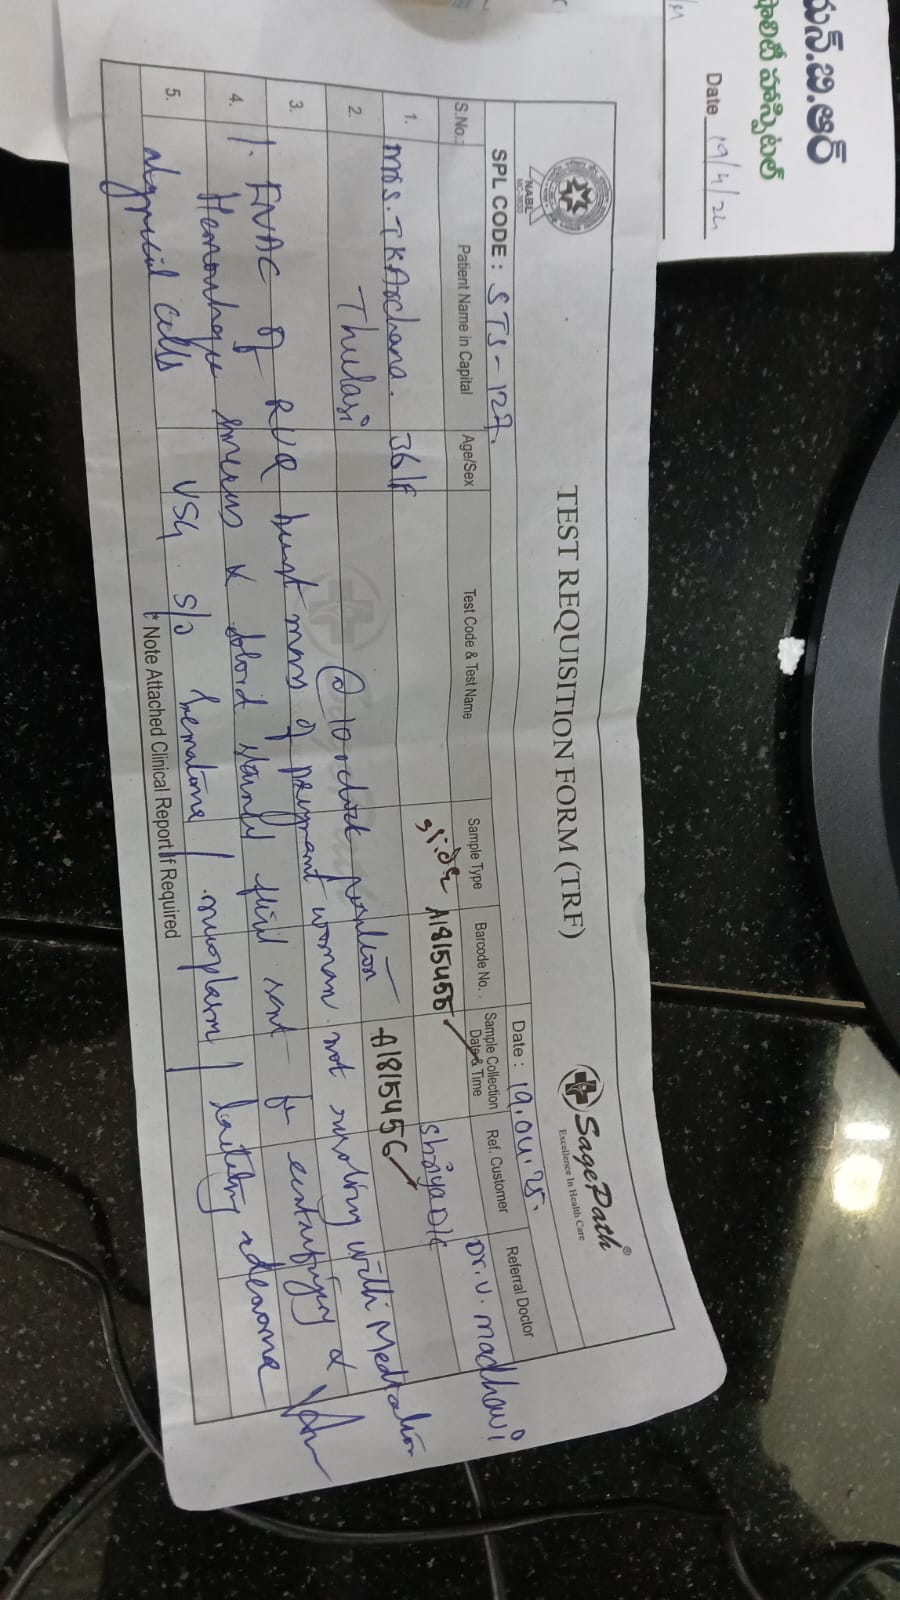 యన్.బి.ఆర్
హాస్పిటల్
Date 19/4/24
NABL
TEST REQUISITION FORM (TRF)
SagePath®
Excellence In Health Care
SPL CODE : STS-127.
Date : 19.04.25.
S.No.: Patient Name in Capital Age/Sex Test Code & Test Name Sample Type Barcode No. Sample Collection Date & Time Ref. Customer Referral Doctor
1. Mrs. T K Archana. 36/F Slide A1815455 Shriya D/C Dr. V. Madhavi
2. Thulasi @ 10 o clock position A1815456
3. 1. FNAC of RUQ breast mass of pregnant woman not resolving with Medication
4. Hemorrhagic smears & blood stained fluid sent for centrifuging &
5. atypical cells USG s/o hematoma / neoplasm / lactating adenoma
* Note Attached Clinical Report If Required